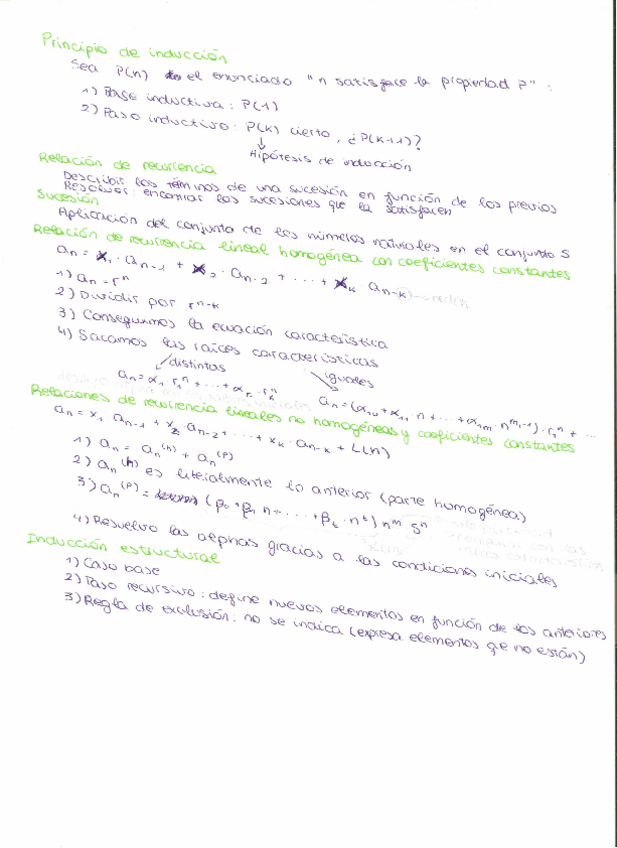 Principio de inducción
Sea P(n) el enunciado "n satisface la propiedad P":
1) Base inductiva: P(1)
2) Paso inductivo: P(k) cierto, ¿P(k+1)?
↓
Hipótesis de inducción
Relación de recurrencia
Describir los términos de una sucesión en función de los previos
Resolver: encontrar las sucesiones que la satisfacen
Sucesión
Aplicación del conjunto de los números naturales en el conjunto S
Relación de recurrencia lineal homogénea con coeficientes constantes
an = x1 · an-1 + x2 · an-2 + ... + xk an-k → orden
1) an = r^n
2) Dividir por r^n-k
3) Conseguimos la ecuación característica
4) Sacamos las raíces características
distintas
iguales
an = α1 r1^n + ... + αk · rk^n
an = (α10 + α11 n + ... + α1m · n^m1-1) · r1^n + ...
Relaciones de recurrencia lineales no homogéneas y coeficientes constantes
an = x1 an-1 + x2 an-2 + ... + xk · an-k + L(n)
1) an = an^(h) + an^(p)
2) an^(h) es literalmente lo anterior (parte homogénea)
3) an^(p) = (β0 + β1 n + ... + βt · n^t) n^m s^n
4) Resuelvo las alphas gracias a las condiciones iniciales
Inducción estructural
1) Caso base
2) Paso recursivo: define nuevos elementos en función de los anteriores
3) Regla de exclusión: no se indica (expresa elementos qe no están)